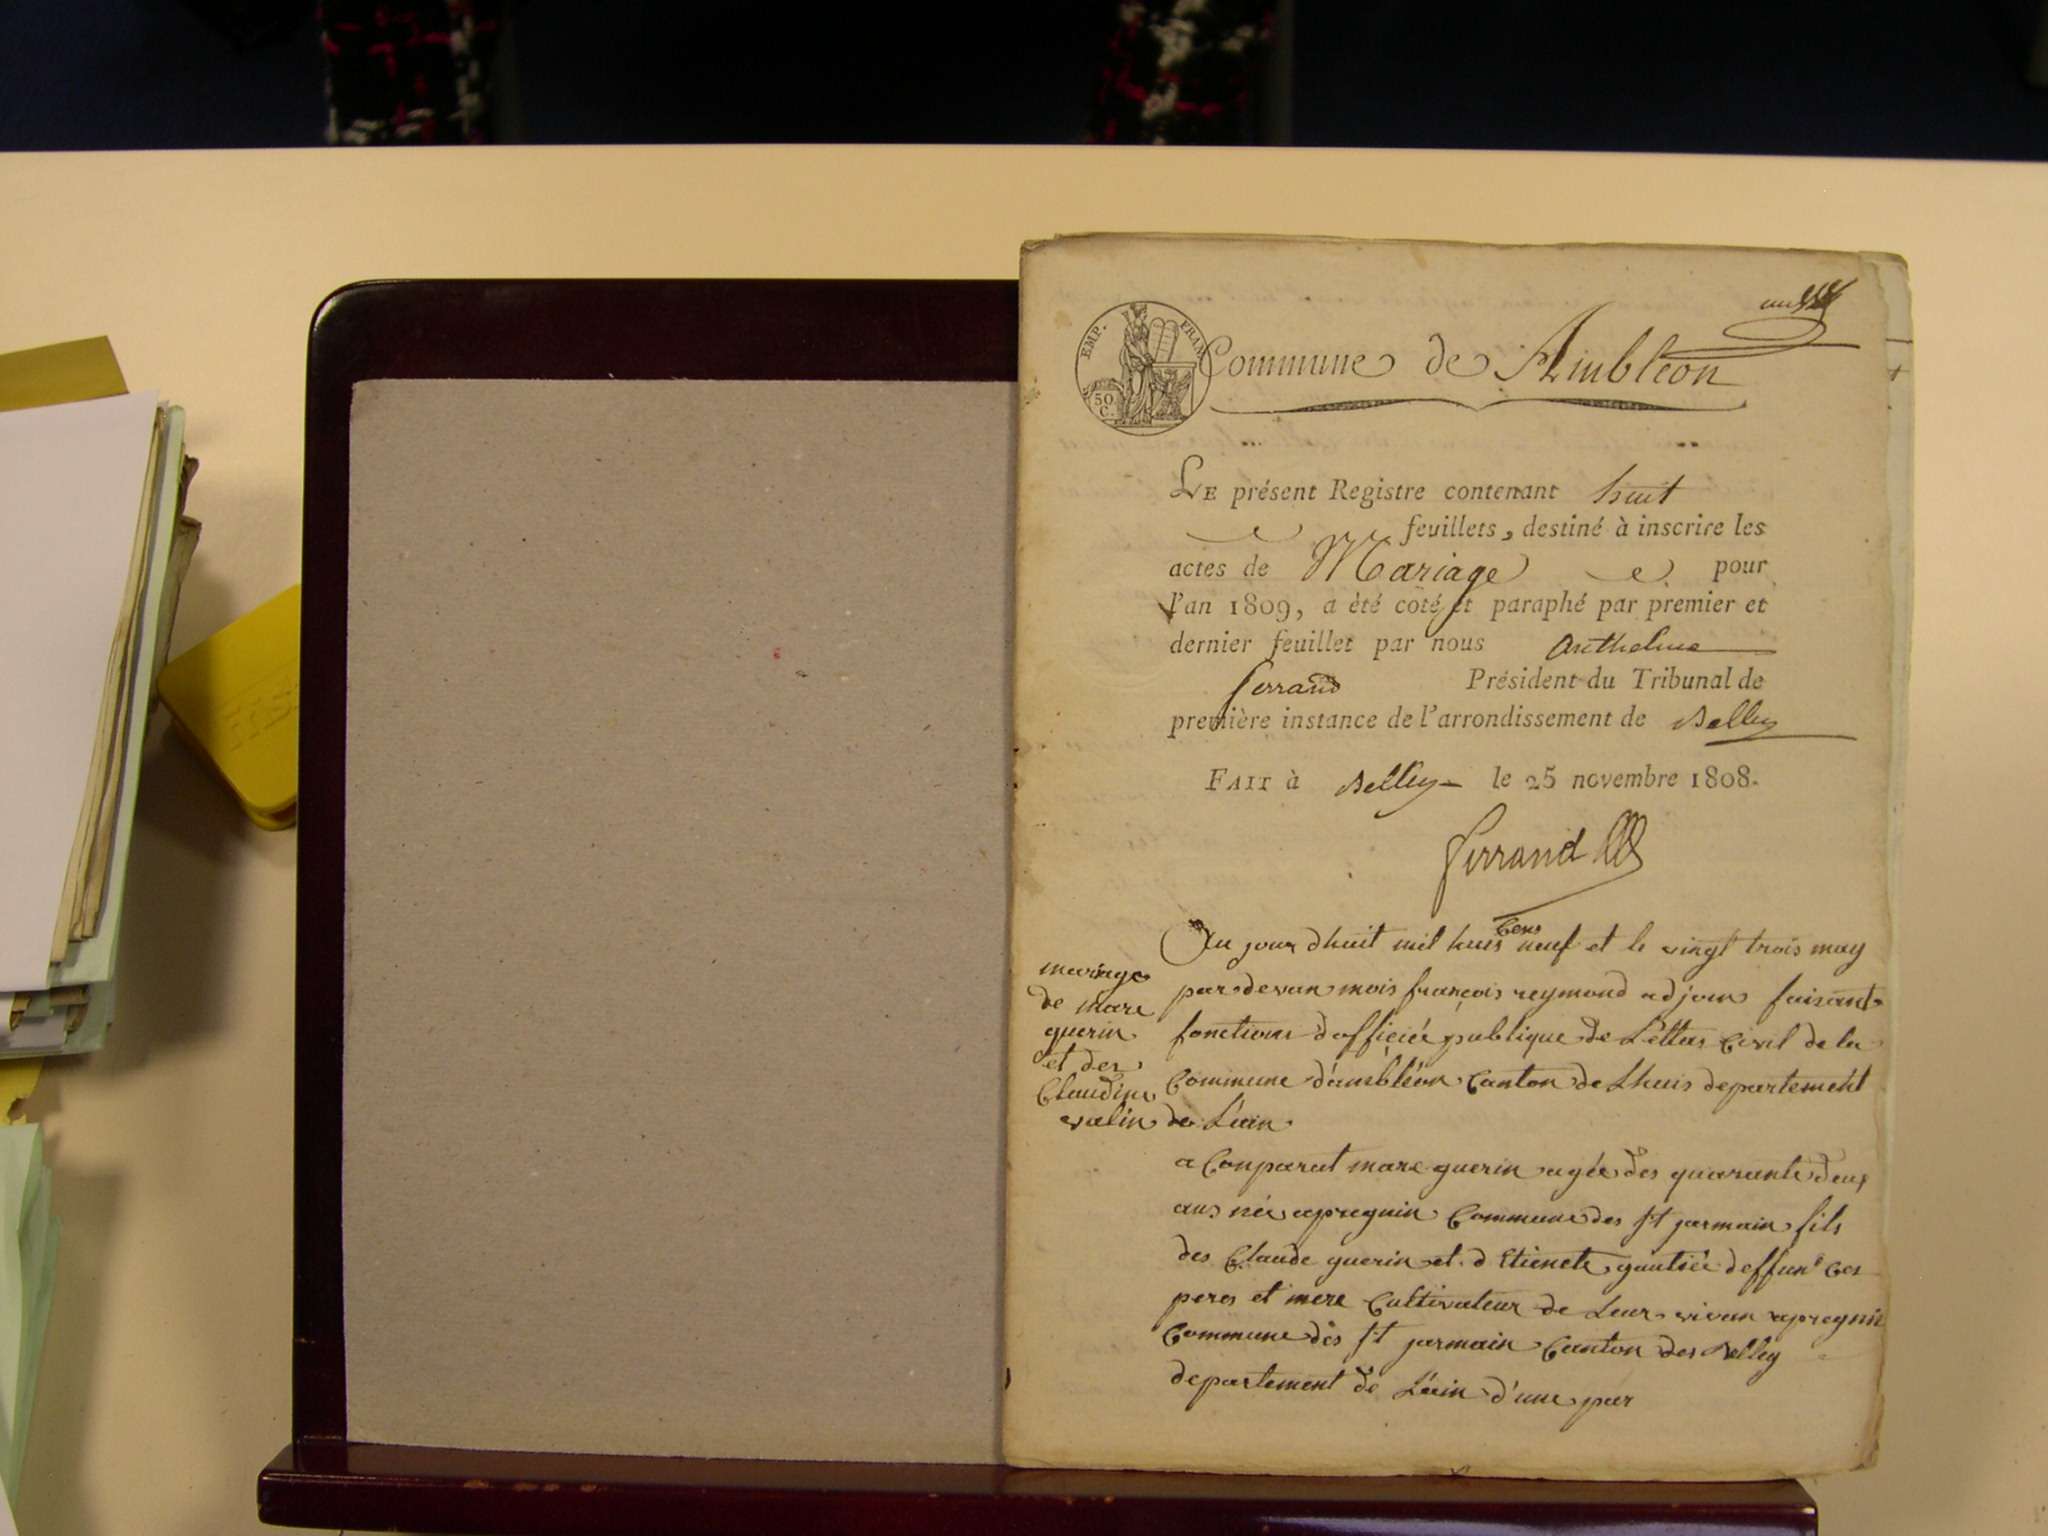 EMP. FRAN.
50 C.
Commune de Aimbléon
LE présent Registre contenant huit
feuillets, destiné à inscrire les
actes de Mariage pour
l'an 1809, a été coté et paraphé par premier et
dernier feuillet par nous Anthelme
ferrand Président du Tribunal de
première instance de l'arrondissement de Belley
FAIT à Belley le 25 novembre 1808.
ferrand
mariage
de marc
guerin
et des
Claudine
valin
Au jour dhuit mil huis cens neuf et le vingt trois may
par devan mois françois reymond adjoin faisant
fonctions dofficiée publique de Léttas Civil de la
Commune dambléon Canton de Lhuis departement
de Léain
a Conparut marc guerin agée des quarante deux
ans née apregnin Commune des st jarmain fils
des Claude guerin et d Etienete gautiée deffunt Ces
peres et mere Cultivateur de Leur vivan apregnin
Commune dés st jarmain Canton des Belley
departement de Léain d'une par